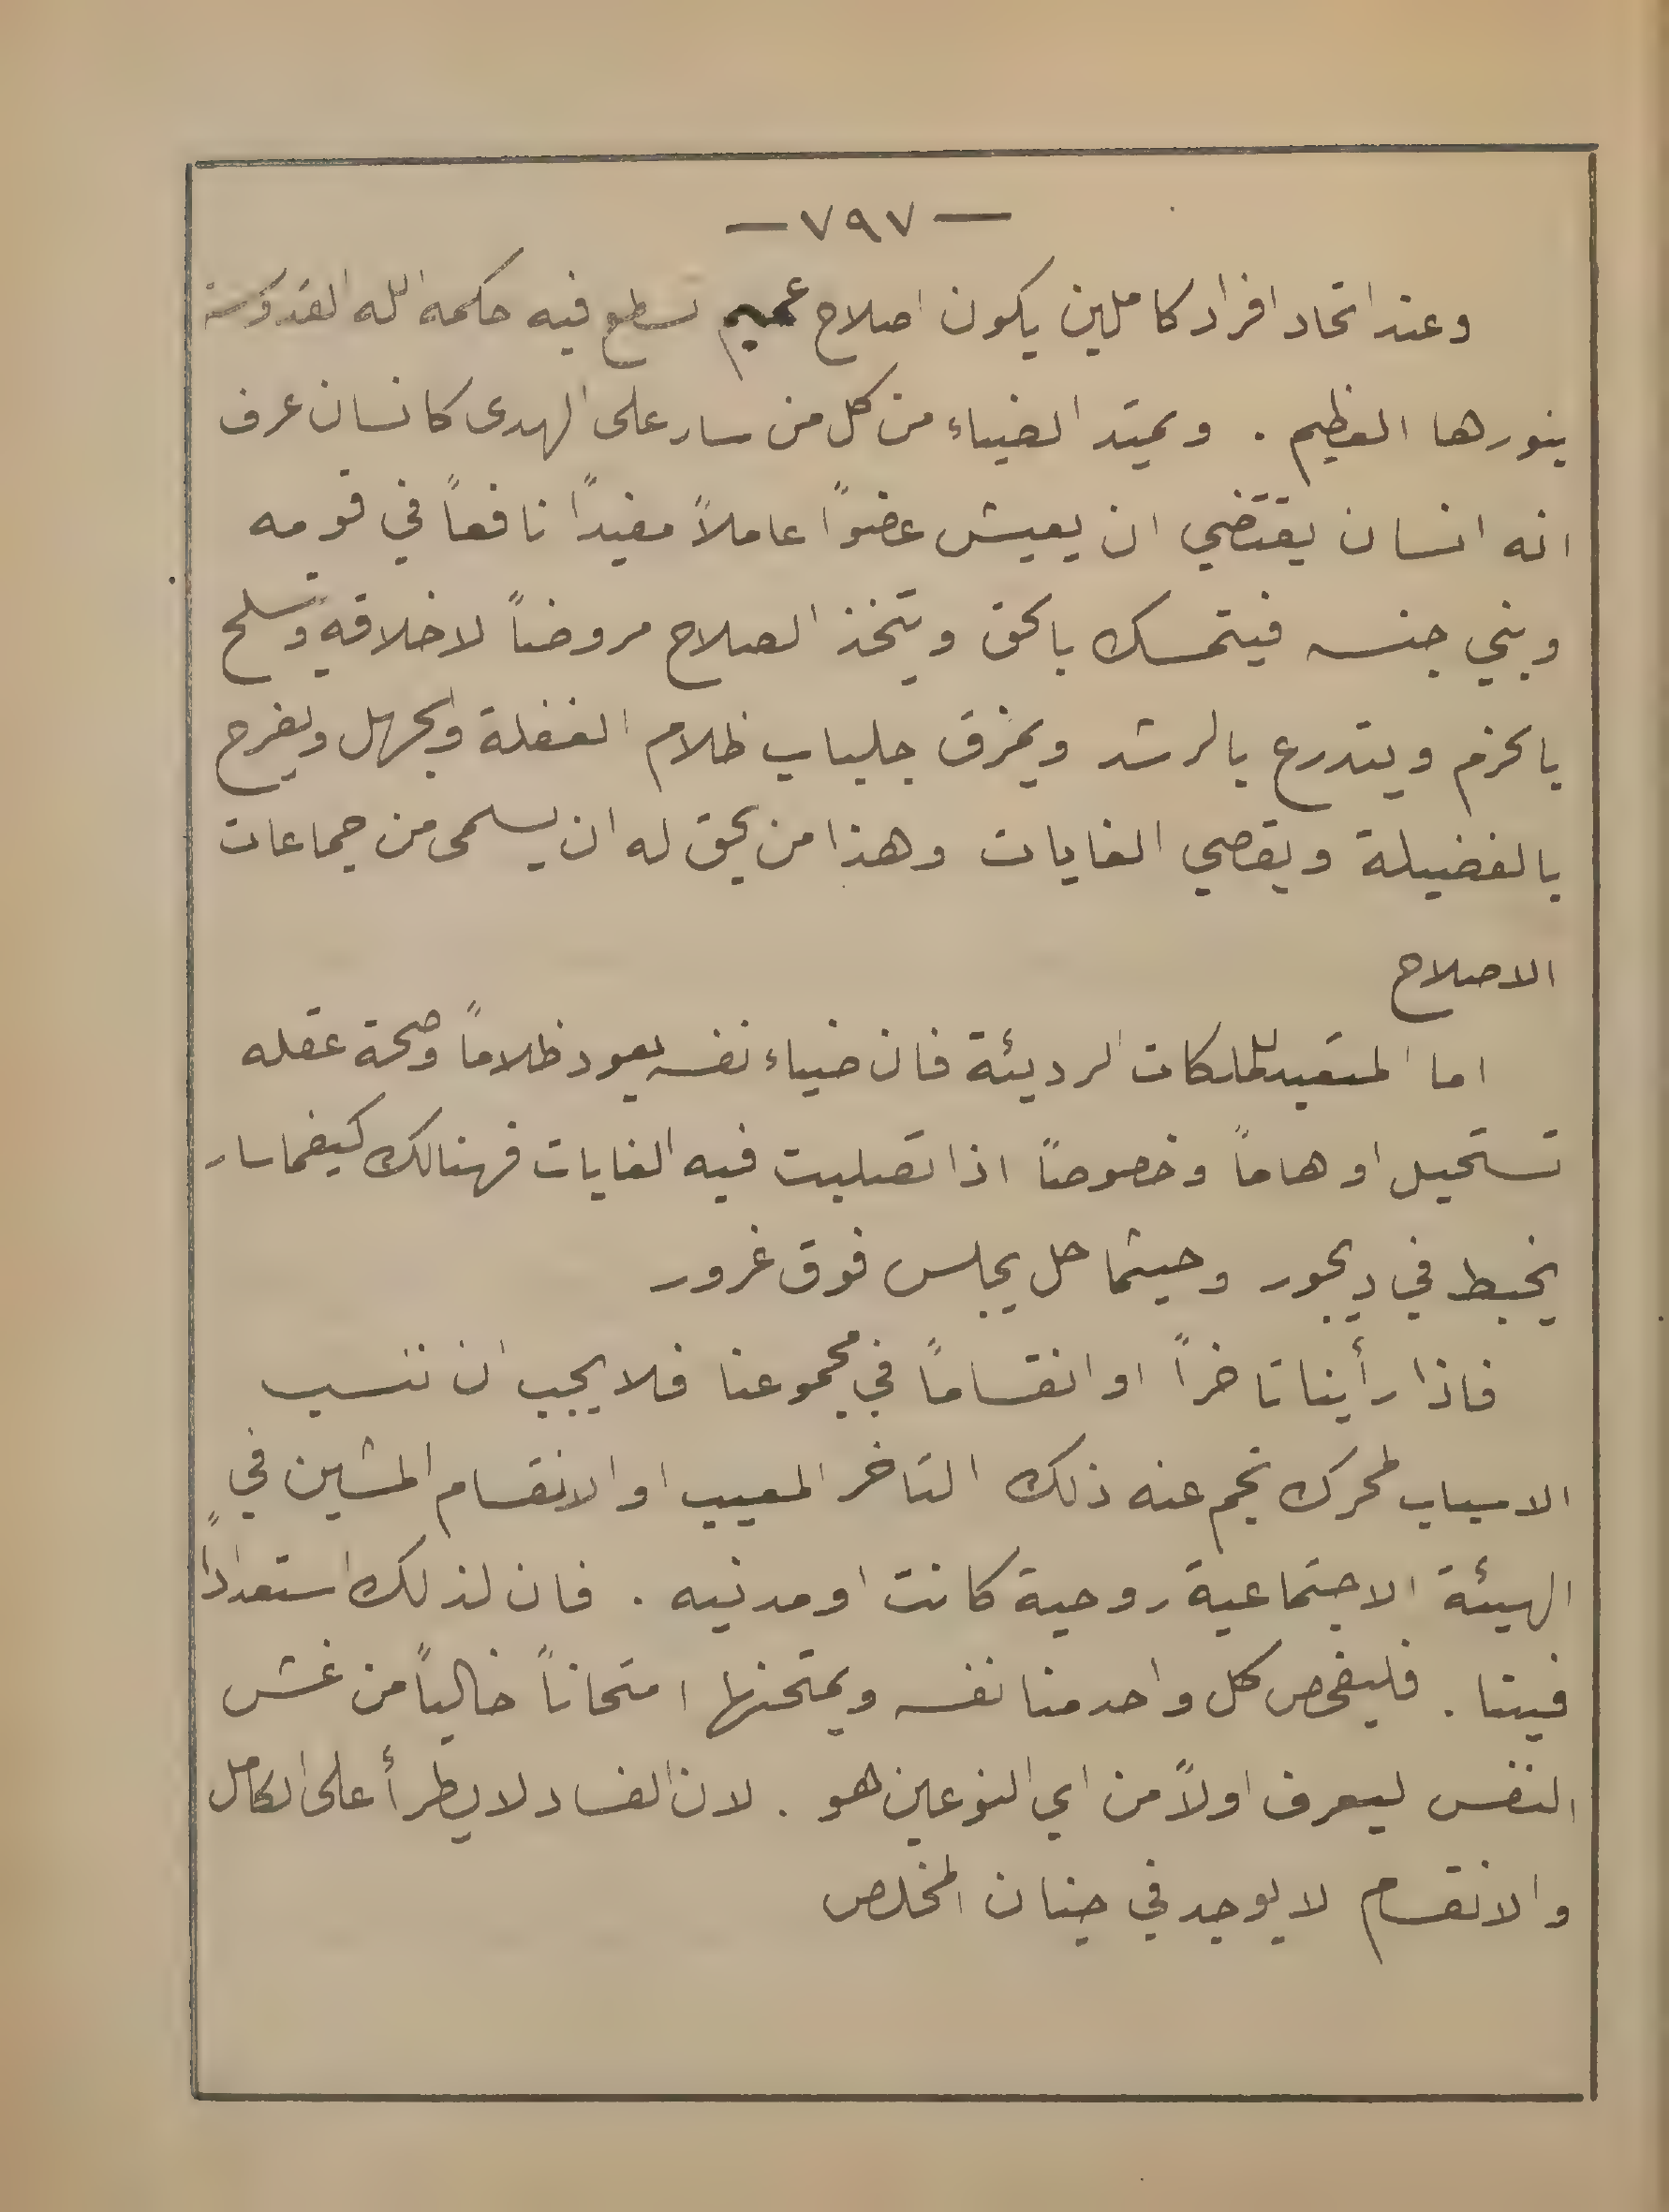 — ٧٩٧ —
وعند اتحاد افراد كاملين يكون اصلاح عميم تسطع فيه حكمه الله القدوسة
بنورها العظيم . ويمتد الضياء من كل من سار على الهدى كانسان عرف
انه انسان يقتضي ان يعيش عضوًا عاملاً مفيدًا نافعاً في قومه
وبني جنسه فيتمسك بالحق ويتخذ الصلاح مروضاً لاخلاقه وتسلح
بالحزم ويتدرع بالرشد ويمزق جلباب ظلام الغفلة والجهل ويفرح
بالفضيلة ويقصي الغايات وهذا من يحق له ان يسمى من جماعات
الاصلاح
اما المتقيد للملكات الرديئة فان ضياء نفسه يعود ظلاماً وصحة عقله
تستحيل اوهاماً وخصوصاً اذا تصلبت فيه الغايات فهنالك كيفما سار
يخبط في ديجور وحيثما حل يجلس فوق غرور
فاذا رأينا تاخراً او انقساماً في مجموعنا فلا يجب ان ننسب
الاسباب لمحرك نجم عنه ذلك التاخر المعيب او الانقسام المشين في
الهيئة الاجتماعية روحية كانت او مدنيه . فان لذلك استعدادًا
فينا . فليفحص كل واحد منا نفسه ويمتحنها امتحاناً خالياً من غش
النفس ليعرف اولاً من اي النوعين هو . لان الفساد لا يطرأ على الكامل
والانقسام لا يوجد في جنان المخلص